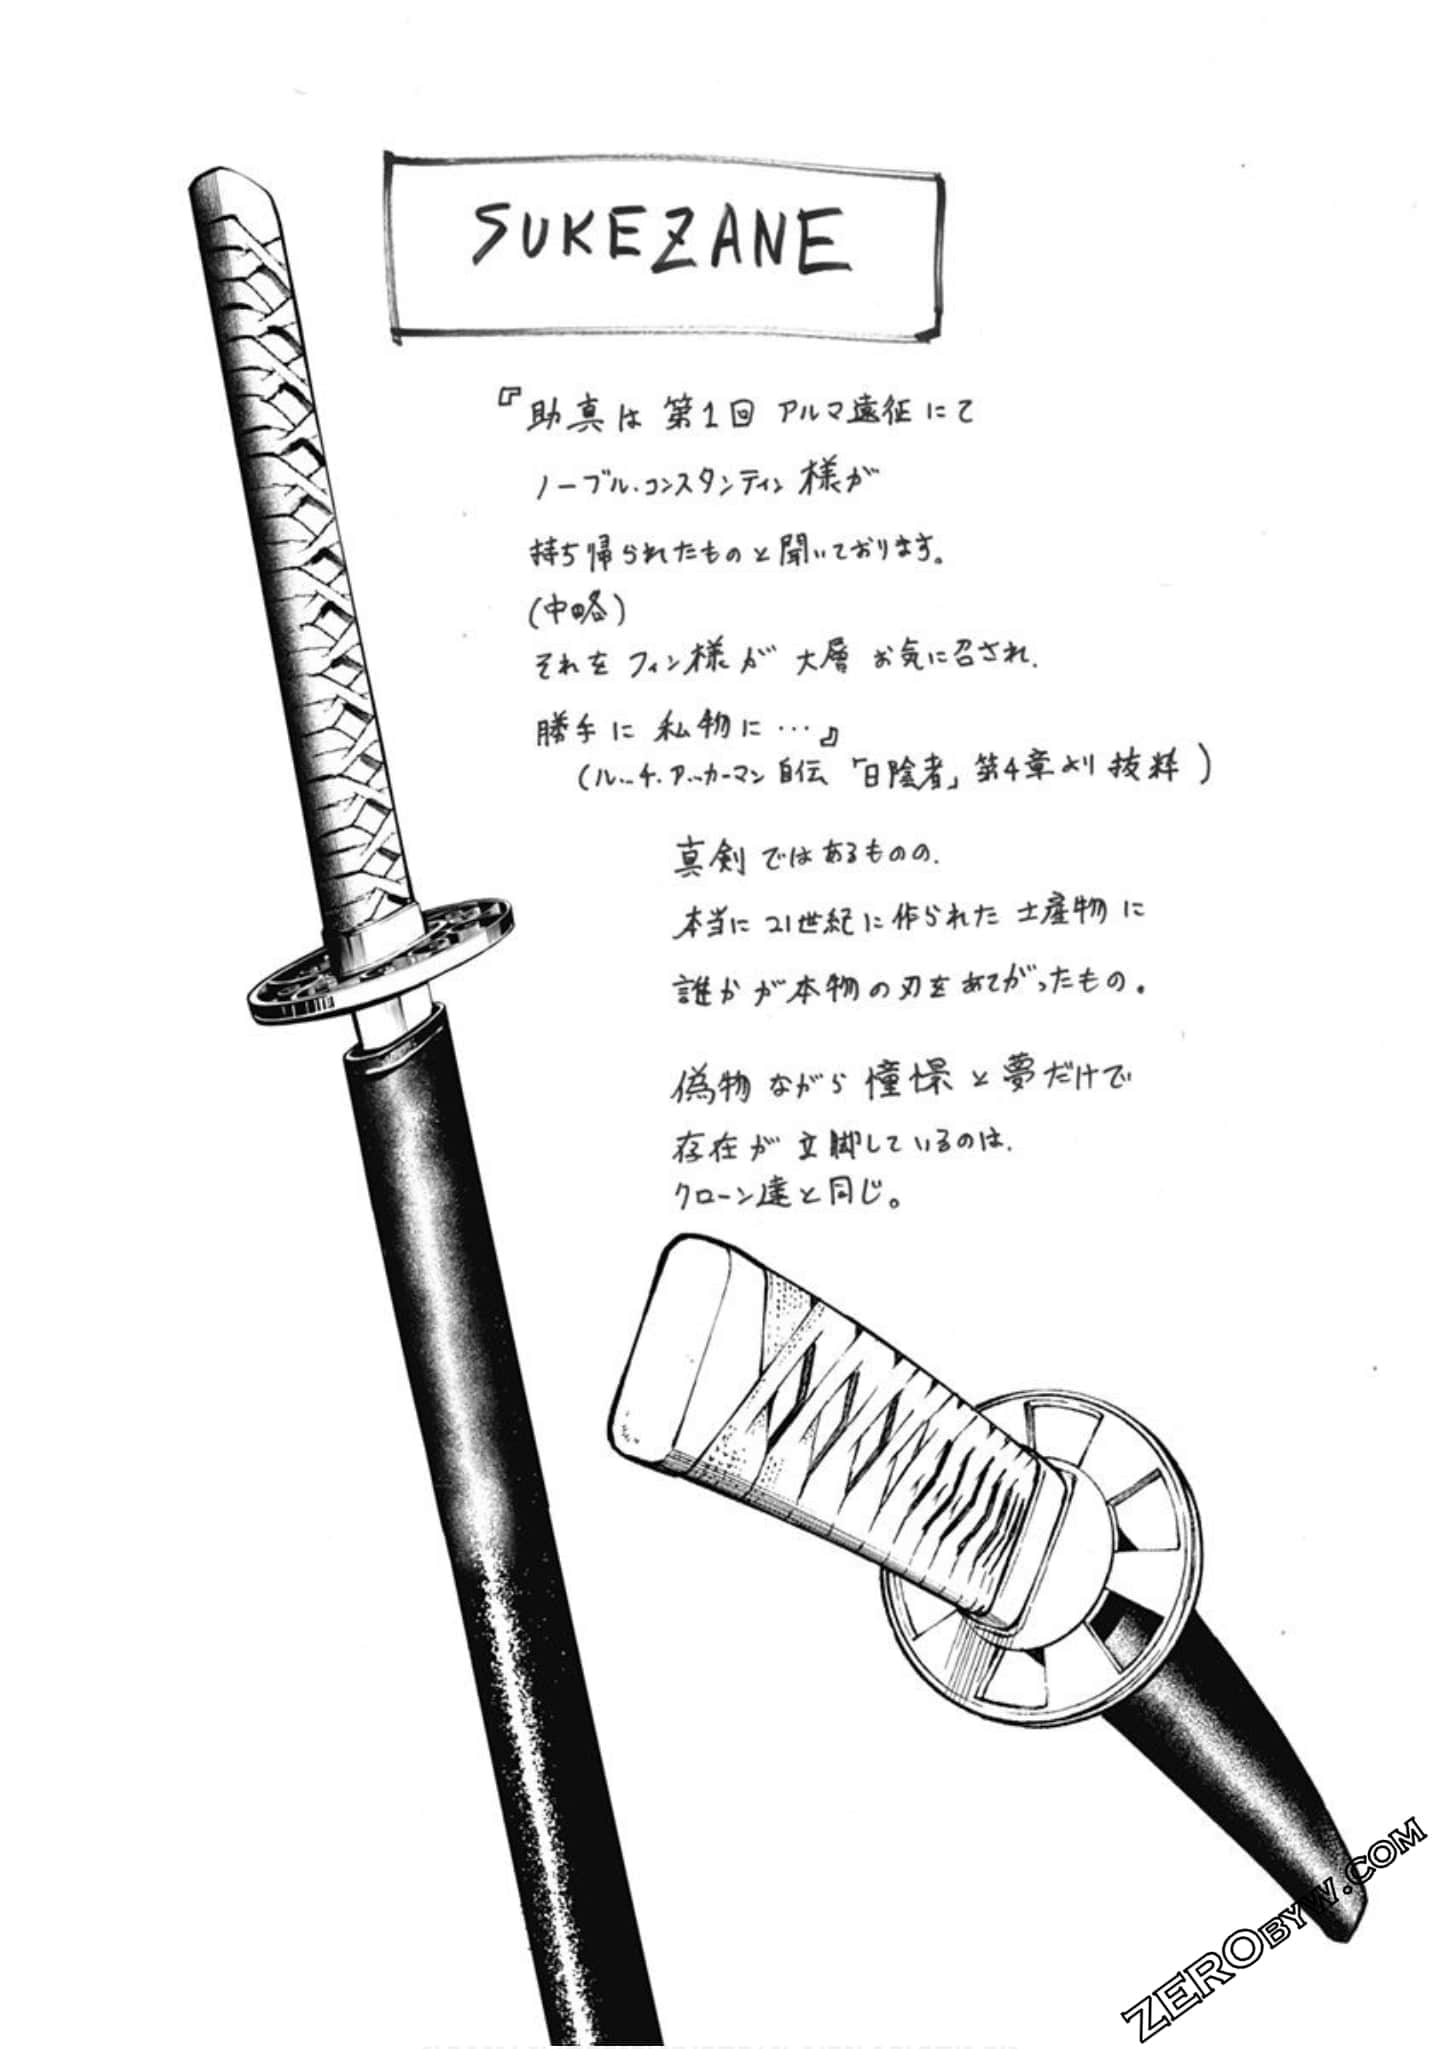 SUKEZANE
『助真は 第1回 アルマ遠征にて
ノーブル・コンスタンティン様が
持ち帰られたものと聞いております。
(中略)
それを フィン様が 大層 お気に召され、
勝手に 私物に…』
(ルッチ・アッカーマン 自伝 「日陰者」 第4章より 抜粋)
真剣ではあるものの、
本当に21世紀に作られた土産物に
誰かが本物の刃をあてがったもの。
偽物ながら 憧憬と夢だけで
存在が 立脚しているのは、
クローン達と同じ。
ZEROBYW.COM